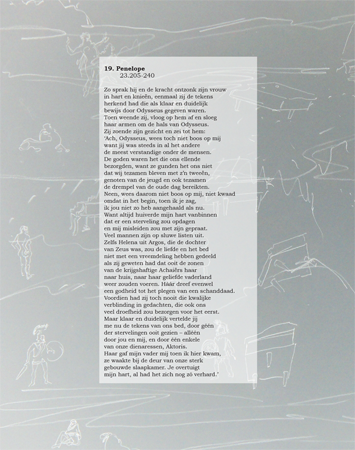 19. Penelope
23.205-240
Zo sprak hij en de kracht ontzonk zijn vrouw
in hart en knieën, eenmaal zij de tekens
herkend had die als klaar en duidelijk
bewijs door Odysseus gegeven waren.
Toen wende zij, vloog op hem af en sloeg
haar armen om de hals van Odysseus.
Zij zoende zijn gezicht en zei tot hem:
'Ach, Odysseus, wees toch niet boos op mij
want jij was steeds in al het andere
de meest verstandige onder de mensen.
De goden waren het die ons ellende
bezorgden, want ze gunden het ons niet
dat wij tezamen bleven met z'n tweeën,
genoten van de jeugd en ook tesamen
de drempel van de oude dag bereikten.
Neen, wees daarom niet boos op mij, niet kwaad
omdat in het begin, toen ik je zag,
ik jou niet zo heb aangehaald als nu.
Want altijd huiverde mijn hart vanbinnen
dat er een sterveling zou opdagen
en mij misleiden zou met zijn gepraat.
Veel mannen zijn op sluwe listen uit.
Zelfs Helena uit Argos, die de dochter
van Zeus was, zou de liefde en het bed
niet met een vreemdeling hebben gedeeld
als zij geweten had dat ooit de zonen
van de krijgshaftige Achaiërs haar
naar huis, naar haar geliefde vaderland
weer zouden voeren. Háár dreef evenwel
een godheid tot het plegen van een schanddaad.
Voordien had zij toch nooit die kwalijke
verblinding in gedachten, die ook ons
veel droefheid zou bezorgen voor het eerst.
Maar klaar en duidelijk vertelde jij
me nu de tekens van ons bed, door géén
der stervelingen ooit gezien – alléén
door jou en mij, en door één enkele
van onze dienaressen, Aktoris.
Haar gaf mijn vader mij toen ik hier kwam,
ze waakte bij de deur van onze sterk
gebouwde slaapkamer. Je overtuigt
mijn hart, al had het zich nog zó verhard.'